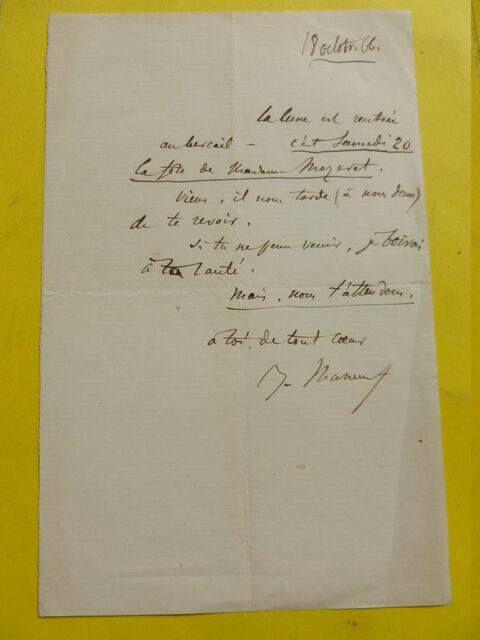 18 octobr. 66.
la lune est rentrée
au bercail - c'est Samedi 20
la fête de Madame Mazeret.
Viens, il nous tarde (à nous deux)
de te revoir.
Si tu ne peux venir, je boirai
à ta santé.
Mais, nous t'attendons.
à toi de tout cœur